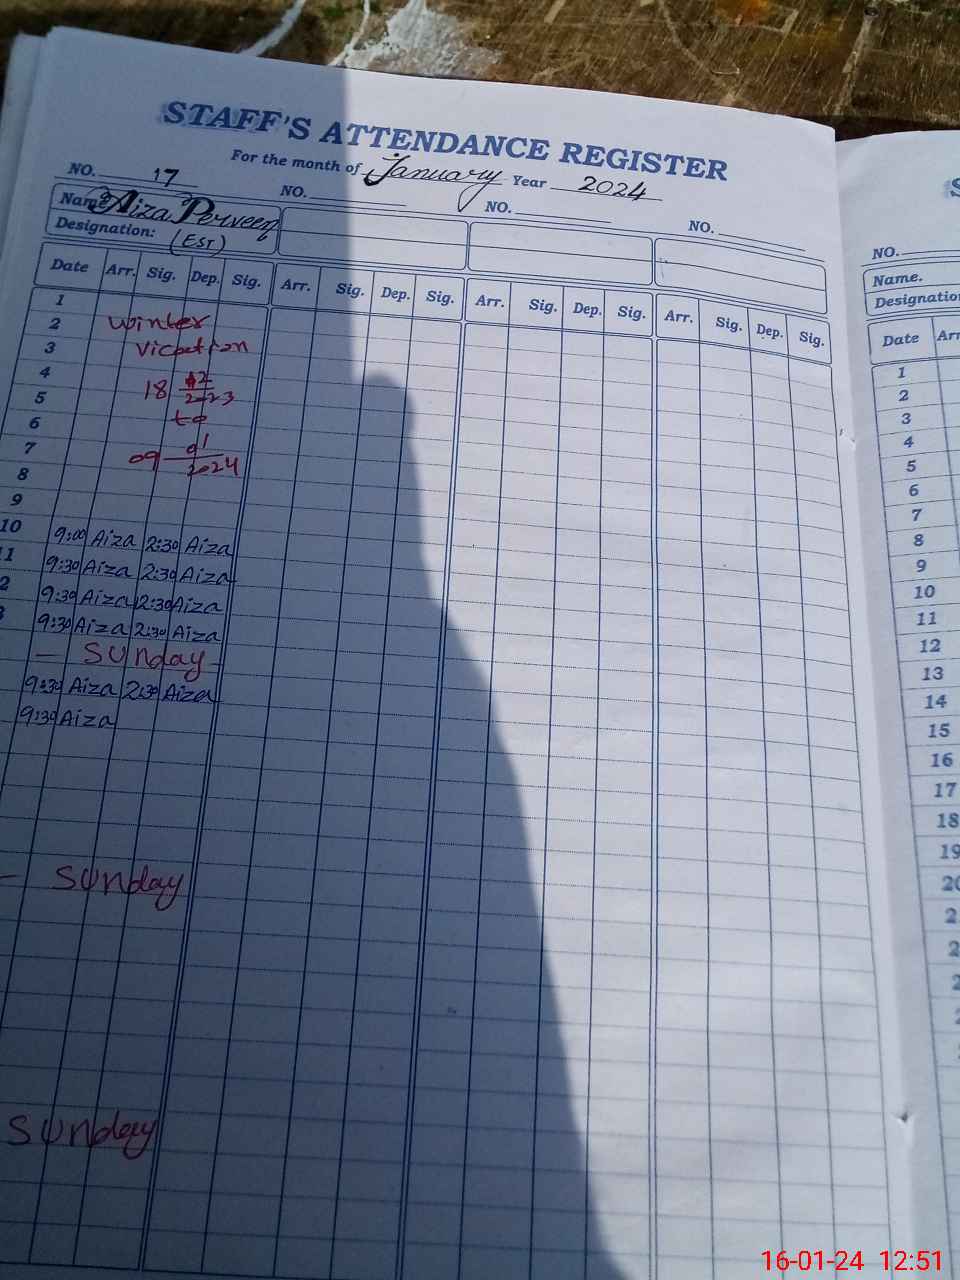 STAFF'S ATTENDANCE REGISTER
For the month of January Year 2024
NO. 17 NO. NO. NO.
Name Aiza Perveen
Designation: (EST)
Date Arr. Sig. Dep. Sig. Arr. Sig. Dep. Sig. Arr. Sig. Dep. Sig. Arr. Sig. Dep. Sig.
1
2 winter
3 Vication
4
5 18 12/2023
6 to
7 09 01/2024
8
9
10 9:00 Aiza 2:30 Aiza
11 9:30 Aiza 2:30 Aiza
2 9:30 Aiza 2:30 Aiza
3 9:30 Aiza 2:30 Aiza
— Sunday -
9:30 Aiza 2:30 Aiza
9:30 Aiza
- Sunday
Sunday
S
NO.
Name.
Designatio
Date Arr
1
2
3
4
5
6
7
8
9
10
11
12
13
14
15
16
17
18
19
20
2
2
2
2
16-01-24 12:51